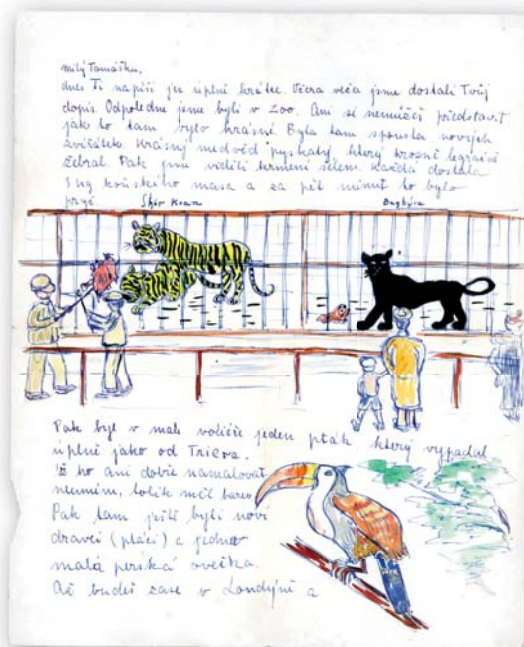 milý Tamášku,
dnes Ti napíši jen úplně krátce. Včera večer jsme dostali Tvůj
dopis. Odpoledne jsme byli v Zoo. Ani si nemůžeš představit
jak to tam bylo krásné. Byla tam spousta nových
zvířátek. Krásný medvěd pyskatý, který hrozně legračně
žebral. Pak jsme viděli krmení šelem. Každá dostala
5 kg koňského masa a za pět minut to bylo
pryč.
Shir Kan
Baghýra
Pak byl v malé voliéře jeden pták, který vypadal
úplně jako od Triera.
že ho ani dobře namalovat
neumím, tolik měl barev.
Pak tam ještě byli noví
dravci (ptáci) a jedna
malá perská ovečka.
Až budeš zase v Londýně a